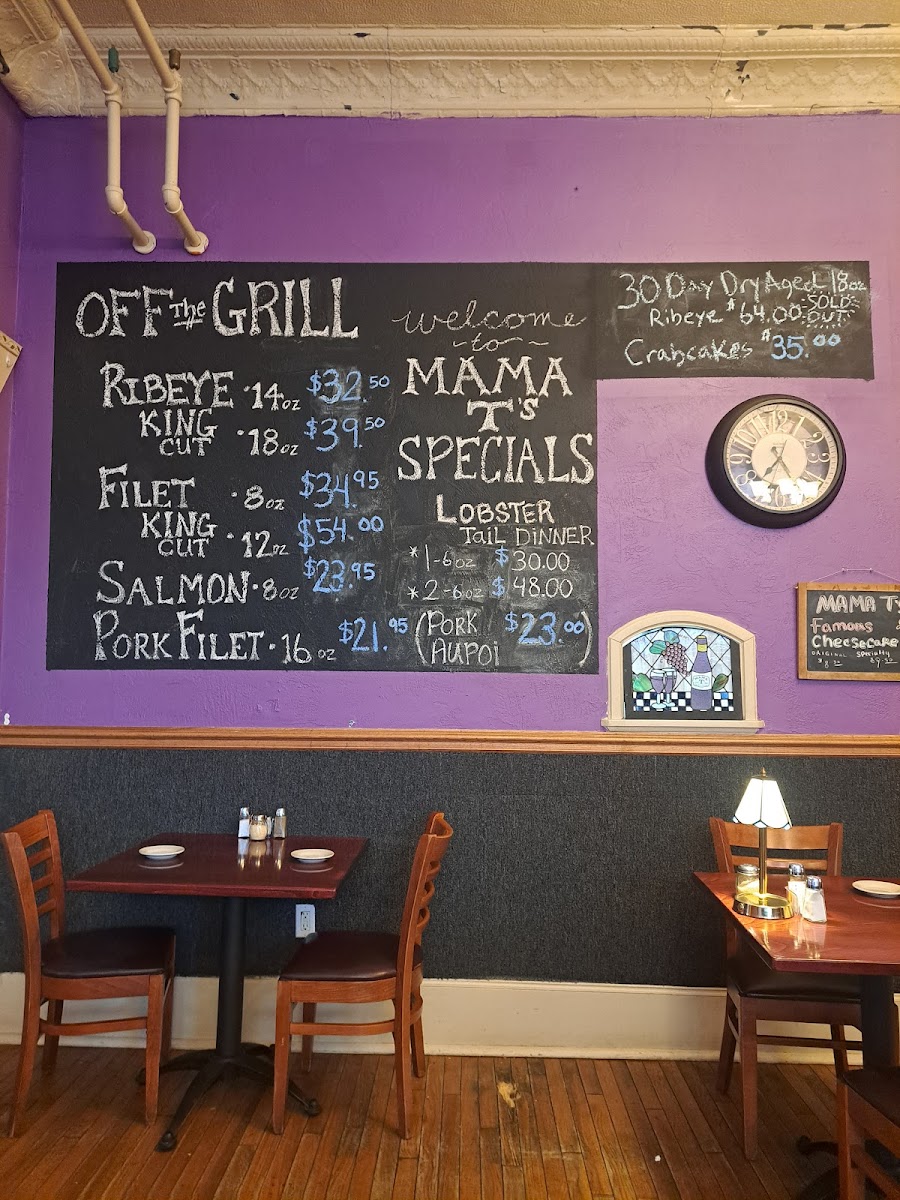 OFF The GRILL
RIBEYE · 14oz $32.50
KING CUT · 18oz $39.50
FILET · 8oz $34.95
KING CUT · 12oz $54.00
SALMON · 8oz $23.95
PORK FILET · 16oz $21.95
(PORK AUPOI $23.00)
welcome
~to~
MAMA
T's
SPECIALS
LOBSTER
TAIL DINNER
*1-6oz $30.00
*2-6oz $48.00
30 Day Dry Aged 18oz
Ribeye $64.00 SOLD OUT
Crabcakes $35.00
12 1 2 3 4 5 6 7 8 9 10 11
MAMA T's
Famous
Cheesecake
ORIGINAL Specialty